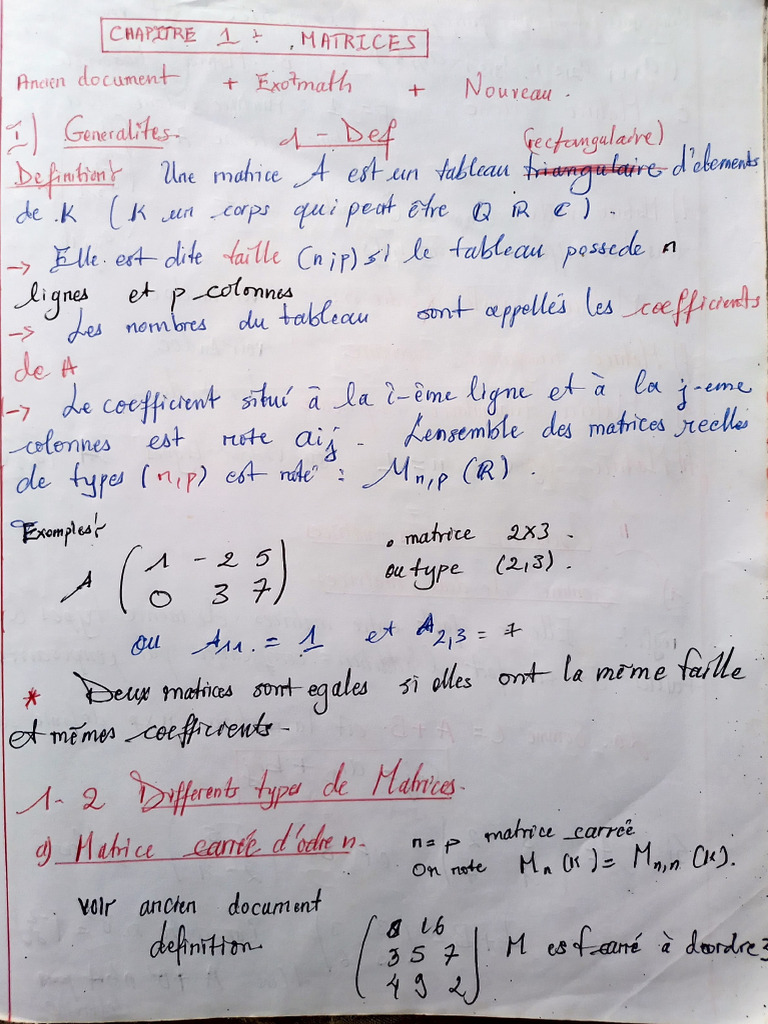 CHAPITRE 1 : MATRICES
Ancien document + Exo7math + Nouveau.
I) Generalites. 1 - Def (rectangulaire)
Definition: Une matrice A est un tableau triangulaire d'elements
de K ( K un corps qui peut être Q R C ).
-> Elle est dite taille (n;p) si le tableau possede n
lignes et p colonnes
-> Les nombres du tableau sont appellés les coefficients
de A
-> Le coefficient situé à la i-ème ligne et à la j-eme
colonnes est note aij. L'ensemble des matrices reelles
de types (n,p) est noté : Mn,p (R).
Exemples: . matrice 2x3.
A ( 1 -2 5 ou type (2,3).
0 3 7 )
ou A11. = 1 et A2,3 = 7
* Deux matrices sont egales si elles ont la même taille
et mêmes coefficients.
1- 2 Differents types de Matrices.
a) Matrice carrée d'odre n. n = p matrice carrée
On note Mn (K) = Mn,n (K).
voir ancien document
definition.
( 8 1 6
3 5 7 M est carré à d'ordre 3
4 9 2 )